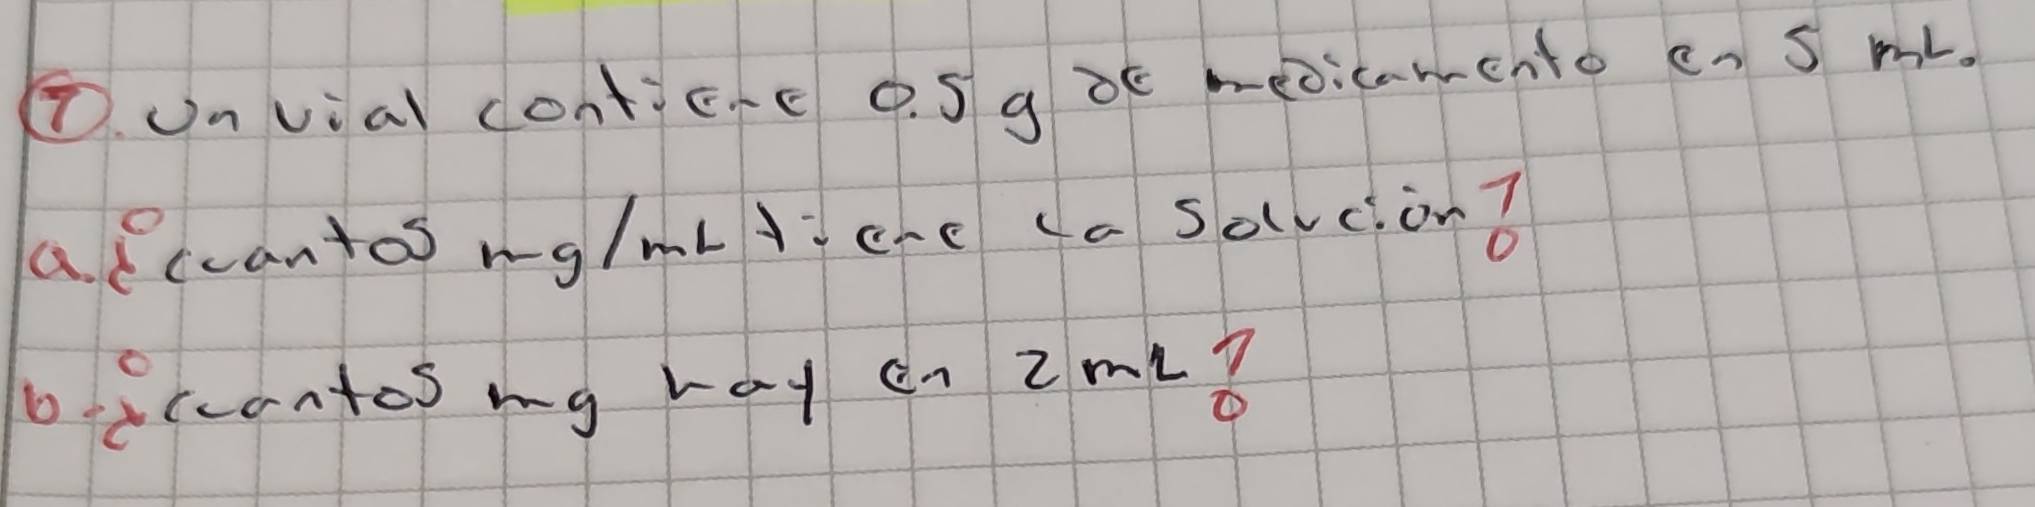 7. Un vial contiene 0.5 g de medicamento en 5 mL.
a. ¿cuantos mg/mL tiene la solución?
b. ¿cuantos mg hay en 2 mL?